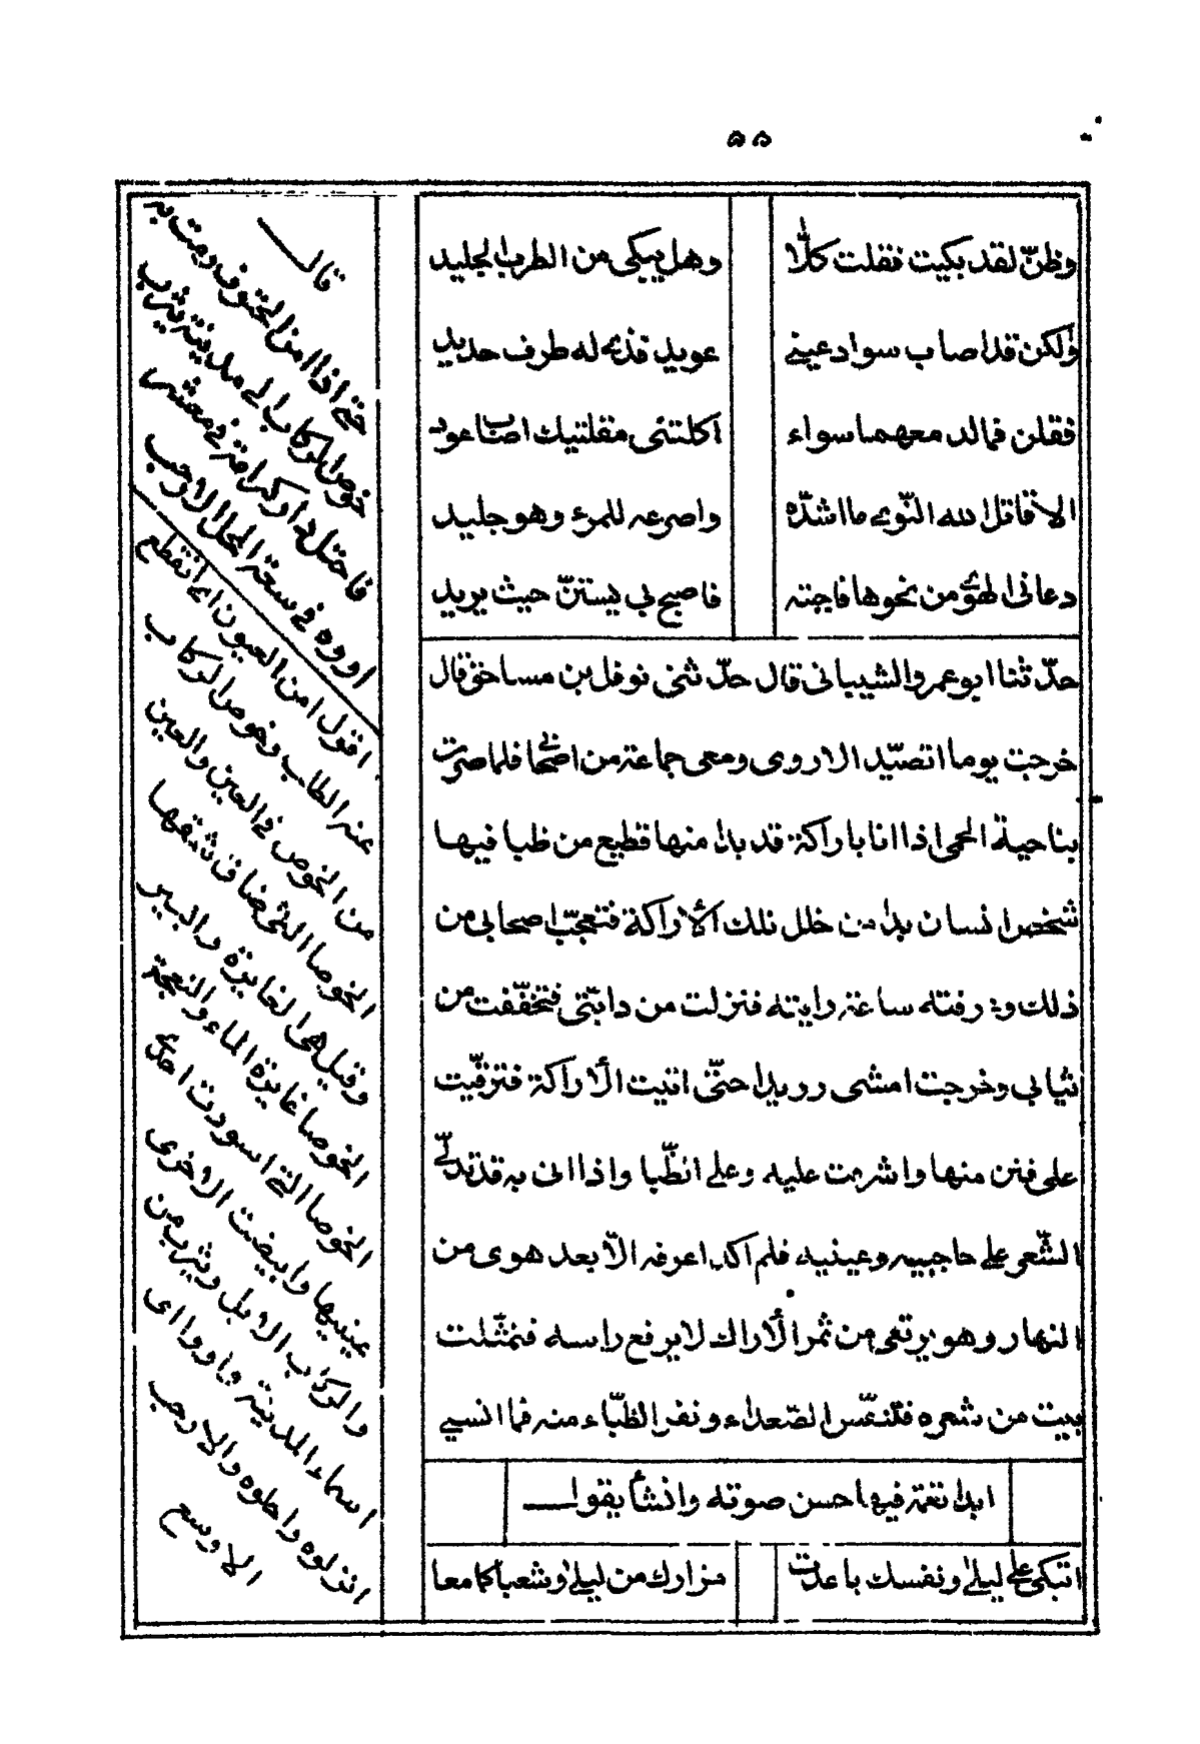 ٥٥
وظنّ لقد بكيت فقلت كلّا وهل يبكى من الطرب الجليد
ولكن قد اصاب سواد عينے عويد قذے له طرف حديد
فقلن فمالد معهما سواء اكلتتى مقلتيك اصاب عود
الا قاتل الله النّوے ما اشدّه واصرعه للمرء وهو جليد
دعانى الهوٰے من نحوها فاجبته فاصبح بي يستنّ حيث يريد
حدّثنا ابو عمرو الشيبانى قال حدّثنى نوفل بن مساحق قال
خرجت يوما اتصيّد الاروى ومعى جماعة من اصحابى فلما صرت
بناحية الحمى اذا انا باراكة قد بدا منها قطيع من ظبا فيها
شخص انسان بدا من خلل تلك الأراكة فتعجّب اصحابى من
ذلك و رفته ساعة رايته فنزلت من دابّتى فتخفّفت من
ثيابى وخرجت امشى رويدا حتّى اتيت الأراكة فترقّيت
على فنن منها واشرفت عليه وعلے الظّبا واذا انى به قد تدلّے
الشّعر علے حاجبيه وعينيه فلم اكد اعرفه الّا بعد هوى من
النهار وهو يرتعى من ثمر الأراك لا يرفع راسه فتمثّلت
ببيت من شعره فتنفّس الصّعداء ونفر الظّباء منه فما انسے
ابدا نغمة فيها حسن صوته وانشأ يقول
اتبكى علے ليلے ونفسك باعدت مزارك من ليلے وشعباكما معا
قال
حتے اذا امن الحتوف رمت به
خوص الركاب الے مدينة يثرب
فاحتل دار كرامة فے معشر
اووه فے سعة المحل الارحب
اقول امن العيون اے انقطع
عنه الطلب وخوص الركاب
من الخوص فے العين والعين
الخوصا التے ضاق شقها
وقيل هى الغايرة والبير
الخوصا غايرة الماء والنعجة
الخوصا التے اسودت احدى
عينيها وابيضت الاخرى
والركاب الابل ويثرب من
اسماء المدينة واووا اى
انزلوه واحلوه والارحب
الاوسع